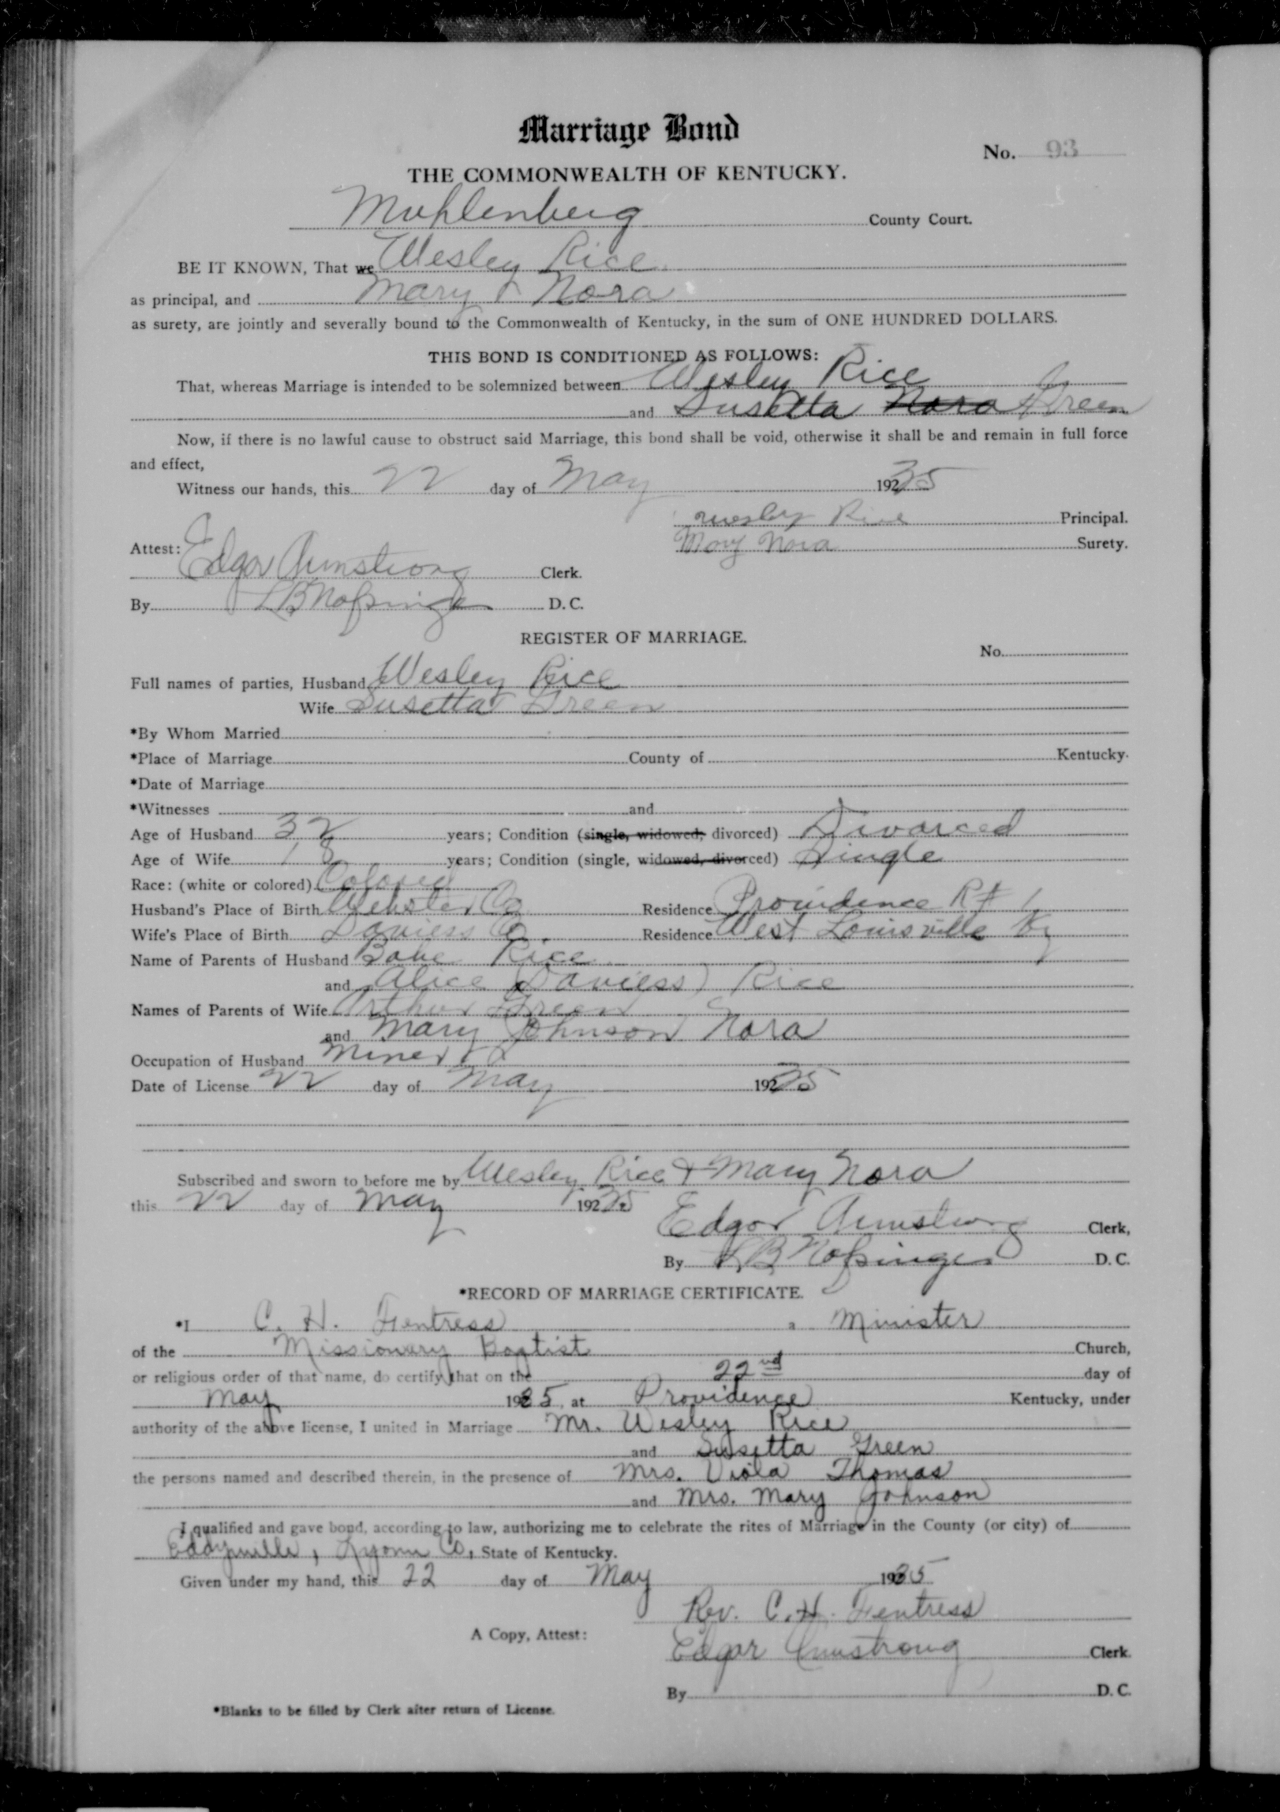 Marriage Bond
No. 93
THE COMMONWEALTH OF KENTUCKY.
Muhlenberg County Court.
BE IT KNOWN, That we Wesley Rice
as principal, and Mary Nora
as surety, are jointly and severally bound to the Commonwealth of Kentucky, in the sum of ONE HUNDRED DOLLARS.
THIS BOND IS CONDITIONED AS FOLLOWS:
That, whereas Marriage is intended to be solemnized between Wesley Rice
and Susetta Nora Green
Now, if there is no lawful cause to obstruct said Marriage, this bond shall be void, otherwise it shall be and remain in full force
and effect,
Witness our hands, this 22 day of May 1935
Wesley Rice Principal.
Mary Nora Surety.
Attest: Edgar Armstrong Clerk.
By D. C.
REGISTER OF MARRIAGE.
No.
Full names of parties, Husband Wesley Rice
Wife Susetta Green
*By Whom Married
*Place of Marriage County of Kentucky.
*Date of Marriage
*Witnesses and
Age of Husband 32 years; Condition (single, widowed, divorced) Divorced
Age of Wife 18 years; Condition (single, widowed, divorced) Single
Race: (white or colored) Colored
Husband's Place of Birth Webster Co Residence Providence R# 1
Wife's Place of Birth Daviess Co. Residence West Louisville Ky
Name of Parents of Husband Rice
and Alice (Daviess) Rice
Names of Parents of Wife Arthur Green
and Mary Johnson Nora
Occupation of Husband Miner
Date of License 22 day of May 1935
Subscribed and sworn to before me by Wesley Rice & Mary Nora
this 22 day of May 1935
Edgar Armstrong Clerk,
By D. C.
*RECORD OF MARRIAGE CERTIFICATE.
*I C. H. Fentress a Minister
of the Missionary Baptist Church,
or religious order of that name, do certify that on the 22nd day of
May 1935, at Providence Kentucky, under
authority of the above license, I united in Marriage Mr. Wesley Rice
and Susetta Green
the persons named and described therein, in the presence of Mrs. Viola Thomas
and Mrs. Mary Johnson
I qualified and gave bond, according to law, authorizing me to celebrate the rites of Marriage in the County (or city) of
Eddyville, Lyonn Co, State of Kentucky.
Given under my hand, this 22 day of May 1935
Rev. C. H. Fentress
A Copy, Attest: Edgar Armstrong Clerk.
By D. C.
*Blanks to be filled by Clerk after return of License.